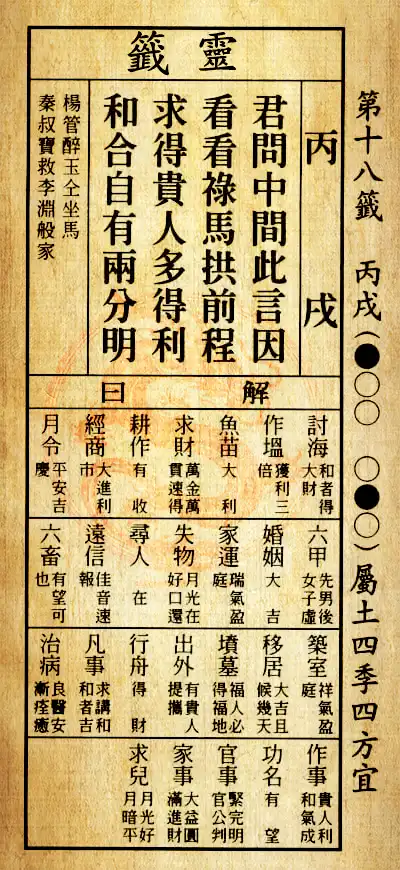 第十八籤 丙戌(●○○ ○●○)屬土四季四方宜
靈籤
丙戌
君問中間此言因
看看祿馬拱前程
求得貴人多得利
和合自有兩分明
楊管醉玉仝坐馬
秦叔寶救李淵般家
解曰
討海 和者得大財
作塭 獲利三倍
魚苗 大利
求財 萬金萬貫速得
耕作 有收
經商 大進利市
月令 平安吉慶
六甲 先男後女子虛
婚姻 大吉
家運 瑞氣盈庭
失物 月光在好口還
尋人 在
遠信 佳音速報
六畜 有望可也
築室 祥氣盈庭
移居 大吉且候幾天
墳墓 福人必得福地
出外 有貴人提攜
行舟 得財
凡事 求講和和者吉
治病 良醫安漸痊癒
作事 貴人利和氣成
功名 有望
官事 緊完明官公判
家事 大益圓滿進財
求兒 月光好月暗平